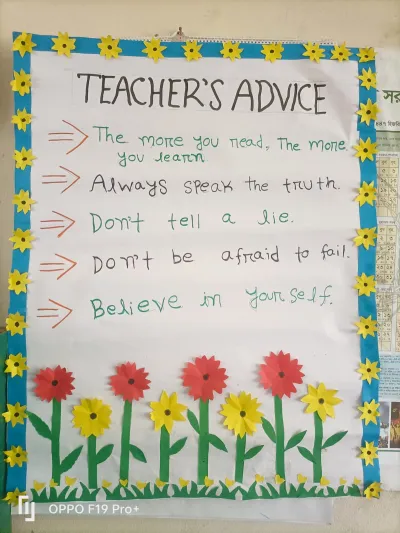 TEACHER'S ADVICE
The more you read, The more
you learn
Always speak the truth.
Don't tell a lie.
Don't be afraid to fail.
Believe in your self.
OPPO F19 Pro+